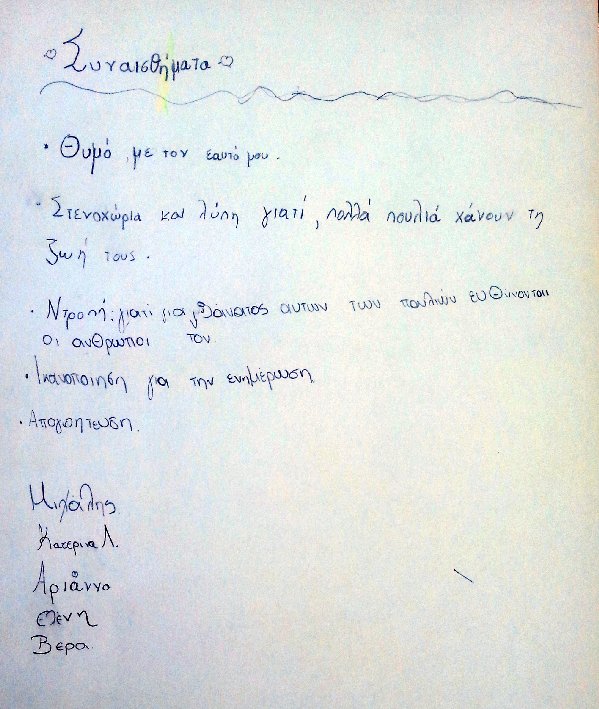 Συναισθήματα
• Θυμό, με τον εαυτό μου.
• Στενοχώρια και λύπη γιατί, πολλά πουλιά χάνουν τη
ζωή τους.
• Ντροπή: γιατί για θάνατος αυτών των πουλιών ευθύνονται
οι ανθρωποι τον
• Ικανοποιηση για την ενημέρωση
• Απογοητευση.
Μιχάλης
Κατερινα Λ.
Αριάννα
ελενη
Βερα